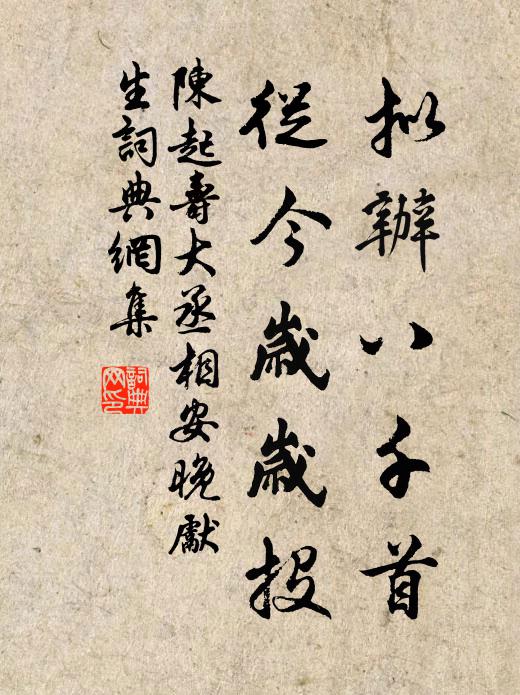 拟辦八千首
從今歲歲投
陳起壽大丞相安晚獻
生詞典網集
詞典
网印